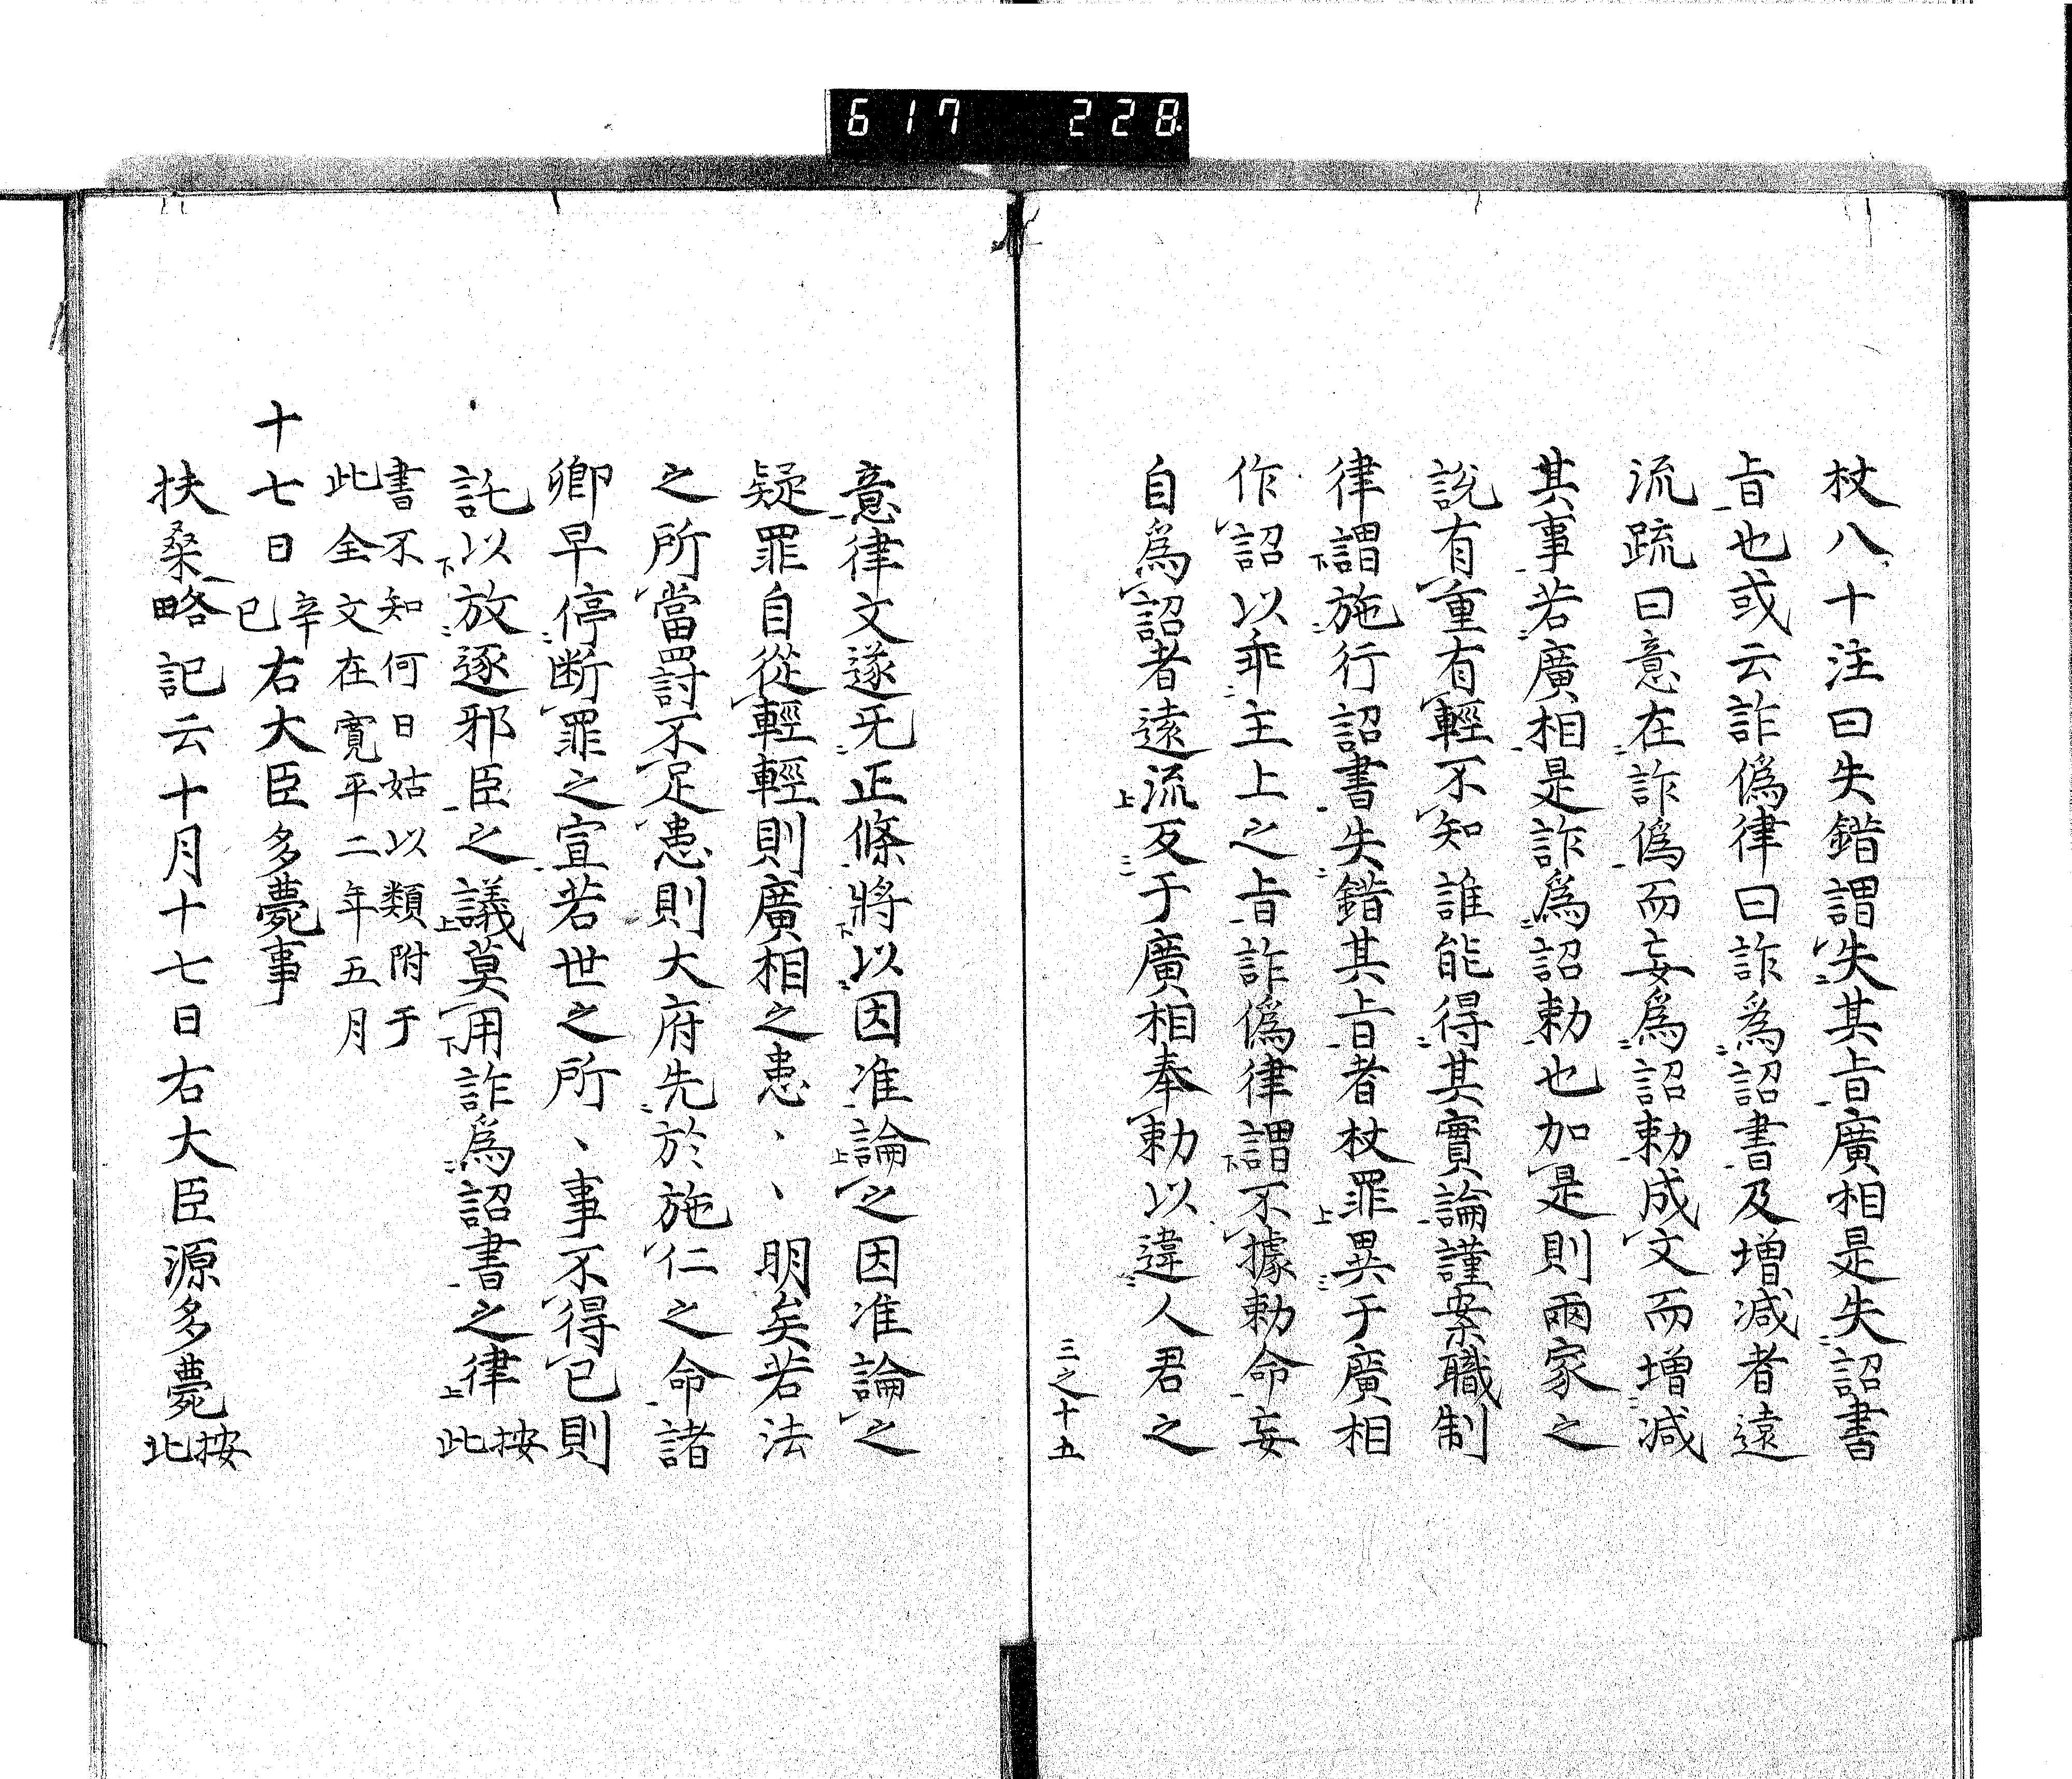 617 228
杖八十注曰失錯謂失其旨廣相是失詔書
旨也或云詐偽律曰詐為詔書及増減者遠
流疏曰意在詐偽而妄為詔勅成文而増減
其事若廣相是詐為詔勅也加是則兩家之
說有重有輕不知誰能得其實論謹案職制
律謂施行詔書失錯其旨者杖罪異于廣相
作詔以乖主上之旨詐偽律謂不據勅命妄
自為詔者遠流反于廣相奉勅以違人君之
三之十五
意律文遂无正條將以因准論之因准論之
疑罪自從輕輕則廣相之恚、、明矣若法
之所當罸不足恚則大府先於施仁之命諸
卿早停断罪之宣若世之所、事不得已則
託以放逐邪臣之議莫用詐為詔書之律按此
書不知何日姑以類附于
此全文在寛平二年五月
十七日辛巳右大臣多薨事
扶桑略記云十月十七日右大臣源多薨按此